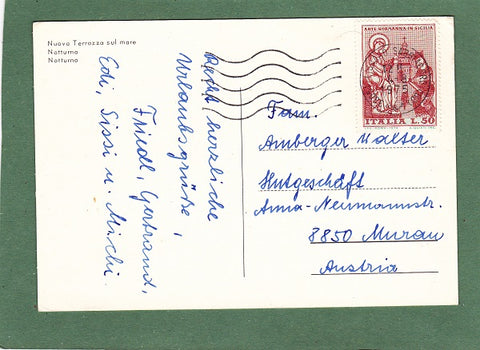 Nuova Terrazza sul mare
Notturno
Notturno
Recht herzliche
Urlaubsgrüße,
Friedl, Gertraud,
Edi, Sissi u. Michi.
ARTE NORMANNA IN SICILIA
ITALIA L.50
Fam.
Amberger Walter
Hutgeschäft
Anna-Neumannstr.
8850 Murau
Austria